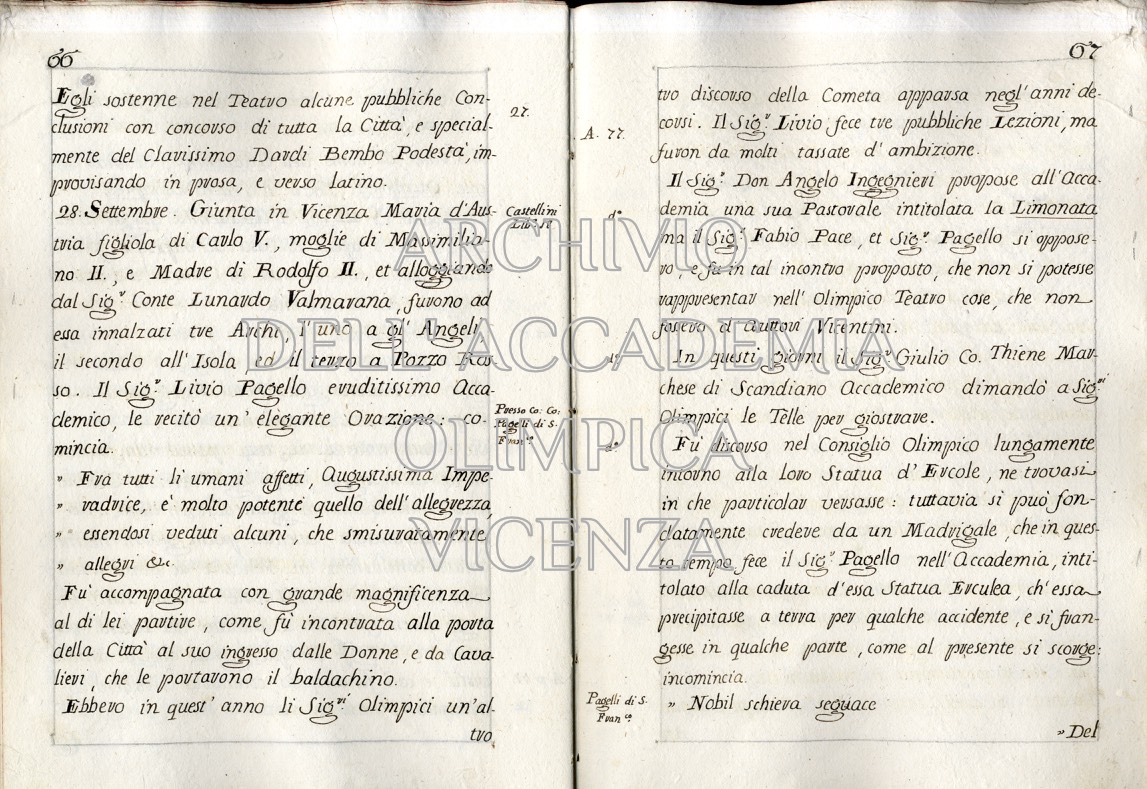 66
Egli sostenne nel Teatro alcune pubbliche Con-
clusioni con concorso di tutta la Città, e special-
mente del Clarissimo Dardi Bembo Podestà, im-
provisando in prosa, e verso latino.
27.
28. Settembre. Giunta in Vicenza Maria d'Aus-
tria figliola di Carlo V., moglie di Massimilia-
no II., e Madre di Rodolfo II., et alloggiando
dal Sig.r Conte Lunardo Valmarana, furono ad
essa innalzati tre Archi, l'uno a gl' Angeli
il secondo all' Isola, ed il terzo a Pozzo Ros-
so. Il Sig.r Livio Pagello eruditissimo Acca-
demico, le recitò un' elegante Orazione: co-
mincia.
Castellini
Lib.
Presso Co: Co:
Pagelli di S.
Fran.co
" Frà tutti li umani affetti, Augustissima Impe-
" radrice, è molto potente quello dell' allegrezza,
" essendosi veduti alcuni, che smisuratamente
" allegri &c.
Fu' accompagnata con grande magnificenza
al di lei partire, come fù incontrata alla porta
della Città al suo ingresso dalle Donne, e da Cava-
lieri, che le portarono il baldachino.
Ebbero in quest' anno li Sig.ri Olimpici un'al-
tro
67
tro discorso della Cometa apparsa negl' anni de-
corsi. Il Sig.r Livio fece tre pubbliche Lezioni, ma
furon da molti tassate d' ambizione.
A. 77.
Il Sig.r Don Angelo Ingegnieri propose all' Acca-
demia una sua Pastorale intitolata la Limonata
ma il Sig.r Fabio Pace, et Sig.r Pagello si oppose-
ro, e fu in tal incontro proposto, che non si potesse
rappresentar nell' Olimpico Teatro cose, che non
fossero d' Auttori Vicentini.
d.o
In questi giorni il Sig.r Giulio Co. Thiene Mar-
chese di Scandiano Accademico dimandò a Sig.ri
Olimpici le Telle per giostrare.
d.o
Fù discorso nel Consiglio Olimpico lungamente
intorno alla loro Statua d' Ercole, ne trovasi
in che particolar versasse: tuttavia si può fon-
datamente credere da un Madrigale, che in ques-
to tempo fece il Sig.r Pagello nell' Accademia, inti-
tolato alla caduta d'essa Statua Erculea, ch'essa
precipitasse a terra per qualche accidente, e si fran-
gesse in qualche parte, come al presente si scorge:
incomincia.
d.o
" Nobil schiera seguace
Pagelli di S.
Fran.co
" Del
ARCHIVIO
DELL'ACCADEMIA
OLIMPICA
VICENZA